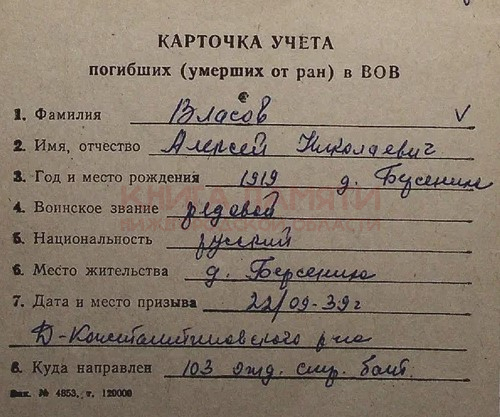 КАРТОЧКА УЧЕТА
погибших (умерших от ран) в ВОВ
1. Фамилия Власов
2. Имя, отчество Алексей Николаевич
3. Год и место рождения 1919 д.
КНИГА ПАМЯТИ
4. Воинское звание рядовой
НИЖЕГОРОДСКОЙ ОБЛАСТИ
5. Национальность русский
6. Место жительства д.
7. Дата и место призыва 22/09-39г
Д-Константиновского р-на
8. Куда направлен 103 стр. бат.
Зак. № 4853, т. 120000